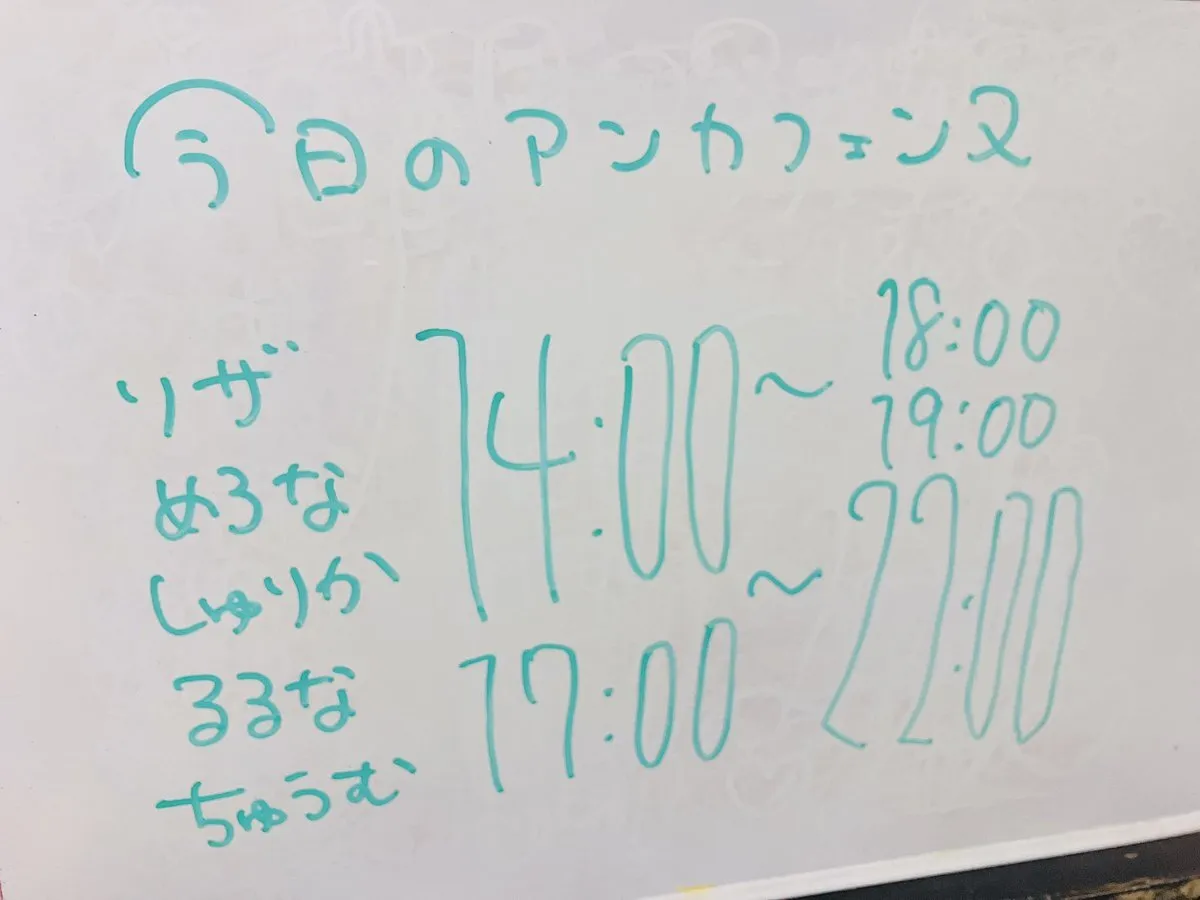 今日のアンカフェンヌ
リザ
めろな
しゅりか
るるな
ちゅうむ
14:00
17:00
~
~
18:00
19:00
22:00